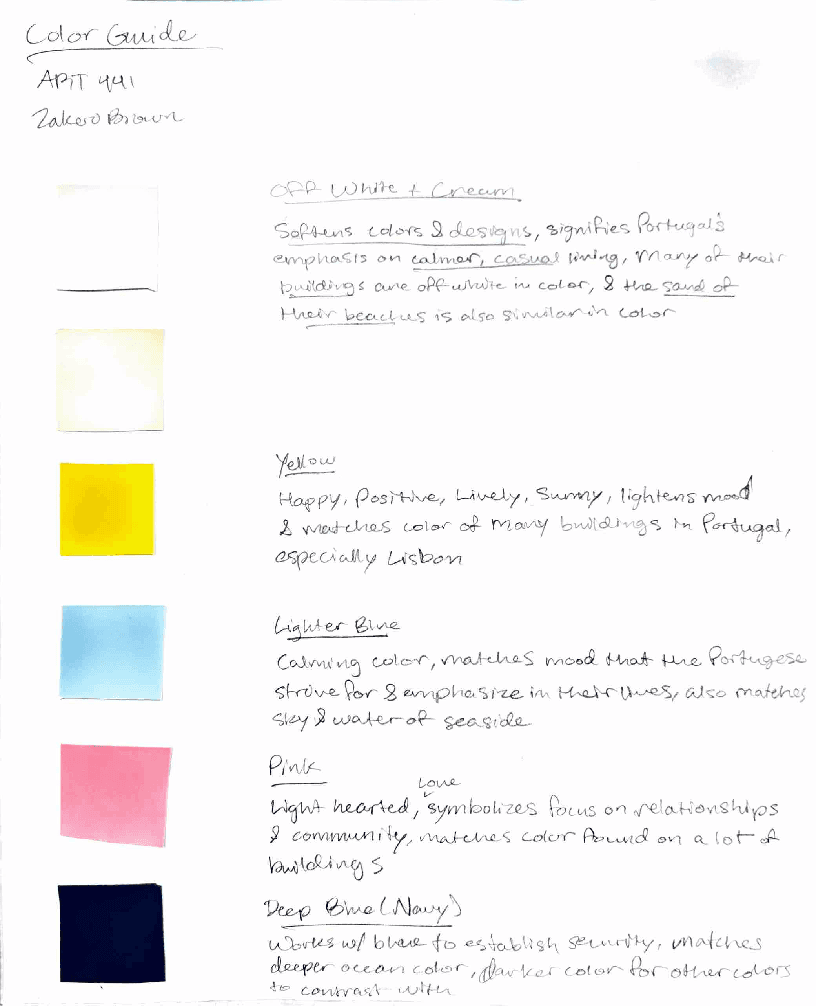 Color Guide
APiT 441
Zakero Brown
Off White + Cream
Softens colors & designs, signifies Portugal's
emphasis on calmer, casual living, many of their
buildings are off-white in color, & the sand of
their beaches is also similar in color
Yellow
Happy, Positive, Lively, Sunny, lightens mood
& matches color of many buildings in Portugal,
especially Lisbon
Lighter Blue
Calming color, matches mood that the Portugese
strove for & emphasize in their lives, also matches
sky & water of seaside
Pink
Love
Light hearted, symbolizes focus on relationships
& community, matches color found on a lot of
buildings
Deep Blue (Navy)
Works w/ blue to establish security, matches
deeper ocean color, darker color for other colors
to contrast with